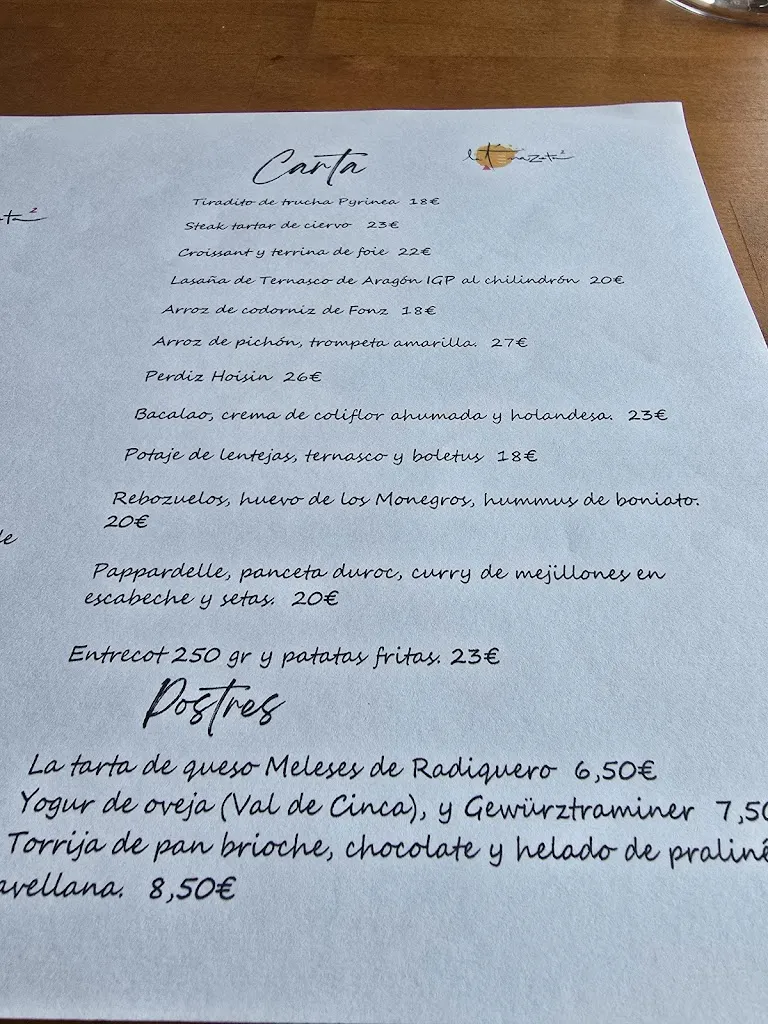 Carta
Tiradito de trucha Pyrinea 18€
Steak tartar de ciervo 23€
Croissant y terrina de foie 22€
Lasaña de Ternasco de Aragón IGP al chilindrón 20€
Arroz de codorniz de Fonz 18€
Arroz de pichón, trompeta amarilla. 27€
Perdiz Hoisin 26€
Bacalao, crema de coliflor ahumada y holandesa. 23€
Potaje de lentejas, ternasco y boletus 18€
Rebozuelos, huevo de los Monegros, hummus de boniato.
20€
Pappardelle, panceta duroc, curry de mejillones en
escabeche y setas. 20€
Entrecot 250 gr y patatas fritas. 23€
Postres
La tarta de queso Meleses de Radiquero 6,50€
Yogur de oveja (Val de Cinca), y Gewürztraminer 7,50
Torrija de pan brioche, chocolate y helado de praliné
avellana. 8,50€